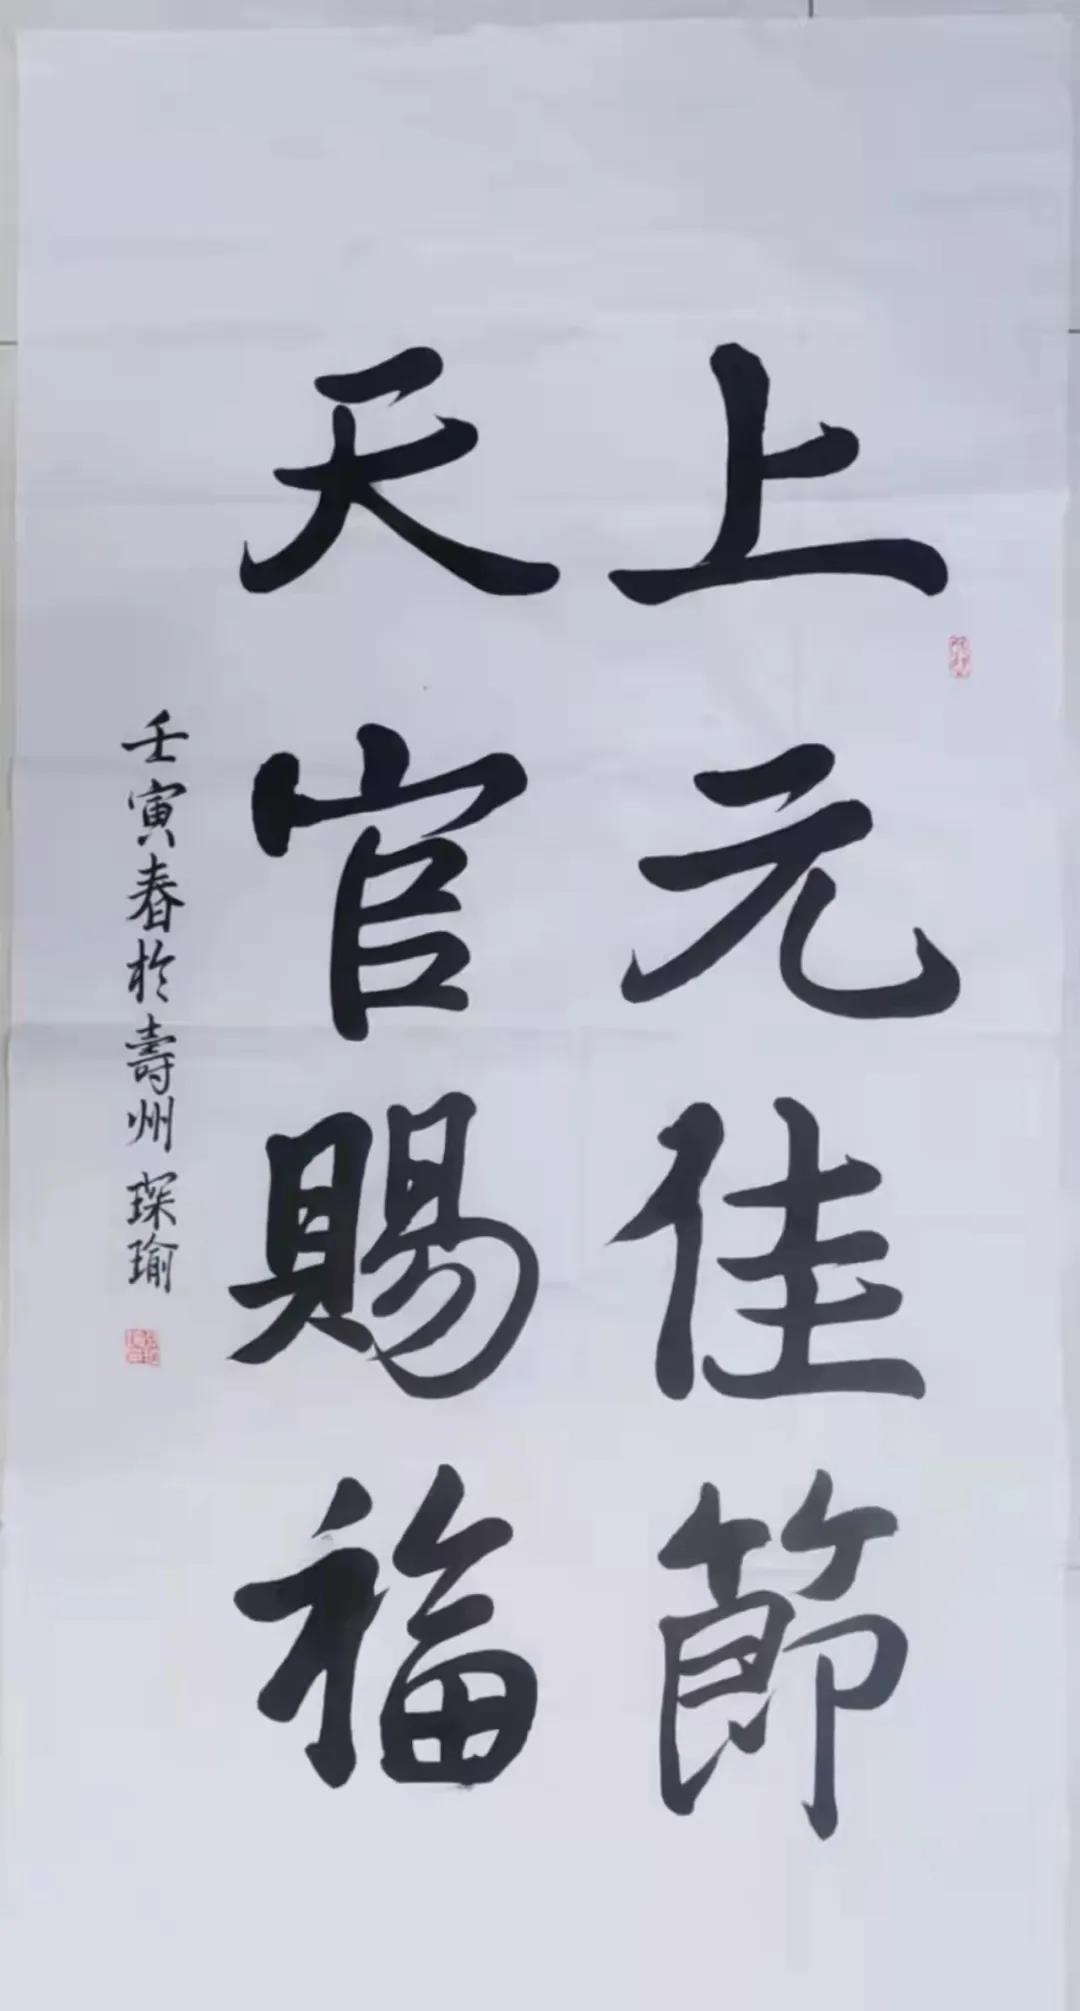 上元佳節
天官賜福
壬寅春於壽州 琛瑜